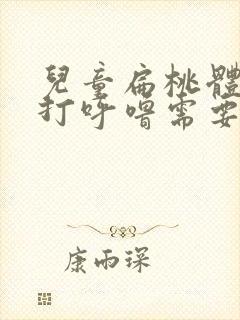 兒童扁桃體
打呼嚕需要
康雨琛